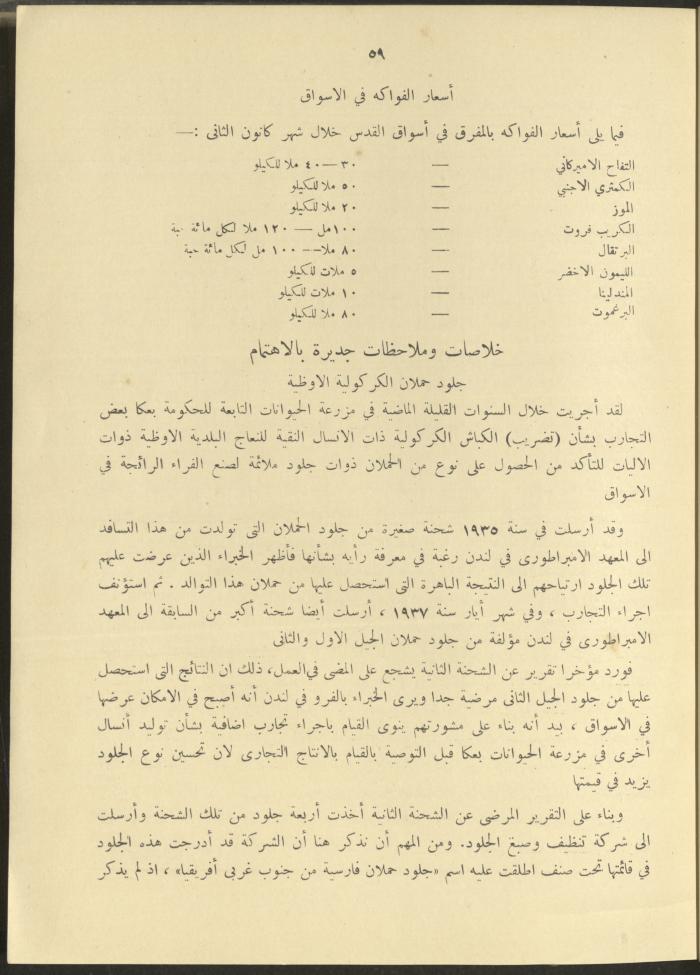 ٥٩
أسعار الفواكه في الاسواق
فيما يلى أسعار الفواكه بالمفرق في أسواق القدس خلال شهر كانون الثانى :—
التفاح الاميركاني — ٣٠ — ٤٠ ملا للكيلو
الكمثري الاجنبي — ٥٠ ملا للكيلو
الموز — ٢٠ ملا للكيلو
الكريب فروت — ١٠٠ مل — ١٢٠ ملا لكل مائة حبة
البرتقال — ٨٠ ملا — ١٠٠ مل لكل مائة حبة
الليمون الاخضر — ٥ ملات للكيلو
المندلينا — ١٠ ملات للكيلو
البرغموت — ٨٠ ملا للكيلو
خلاصات وملاحظات جديرة بالاهتمام
جلود حملان الكركولية الاوظية
لقد أجريت خلال السنوات القليلة الماضية في مزرعة الحيوانات التابعة للحكومة بعكا بعض
التجارب بشأن (تضريب) الكباش الكركولية ذات الانسال النقية للنعاج البلدية الاوظية ذوات
الاليات للتأكد من الحصول على نوع من الحملان ذوات جلود ملائمة لصنع الفراء الرائجة في
الاسواق
وقد أرسلت في سنة ١٩٣٥ شحنة صغيرة من جلود الحملان التى تولدت من هذا التسافد
الى المعهد الامبراطورى في لندن رغبة في معرفة رأيه بشأنها فأظهر الخبراء الذين عرضت عليهم
تلك الجلود ارتياحهم الى النتيجة الباهرة التى استحصل عليها من حملان هذا التوالد . ثم استؤنف
اجراء التجارب ، وفي شهر أيار سنة ١٩٣٧ ، أرسلت أيضا شحنة أكبر من السابقة الى المعهد
الامبراطورى في لندن مؤلفة من جلود حملان الجيل الاول والثانى
فورد مؤخرا تقرير عن الشحنة الثانية يشجع على المضى في العمل، ذلك ان النتائج التى استحصل
عليها من جلود الجيل الثانى مرضية جدا ويرى الخبراء بالفرو في لندن أنه أصبح في الامكان عرضها
في الاسواق ، بيد أنه بناء على مشورتهم ينوى القيام باجراء تجارب اضافية بشأن توليد أنسال
أخرى في مزرعة الحيوانات بعكا قبل التوصية بالقيام بالانتاج التجارى لان تحسين نوع الجلود
يزيد في قيمتها
وبناء على التقرير المرضى عن الشحنة الثانية أخذت أربعة جلود من تلك الشحنة وأرسلت
الى شركة تنظيف وصبغ الجلود. ومن المهم أن نذكر هنا أن الشركة قد أدرجت هذه الجلود
في قائمتها تحت صنف اطلقت عليه اسم «جلود حملان فارسية من جنوب غربى أفريقيا» ، اذ لم يذكر